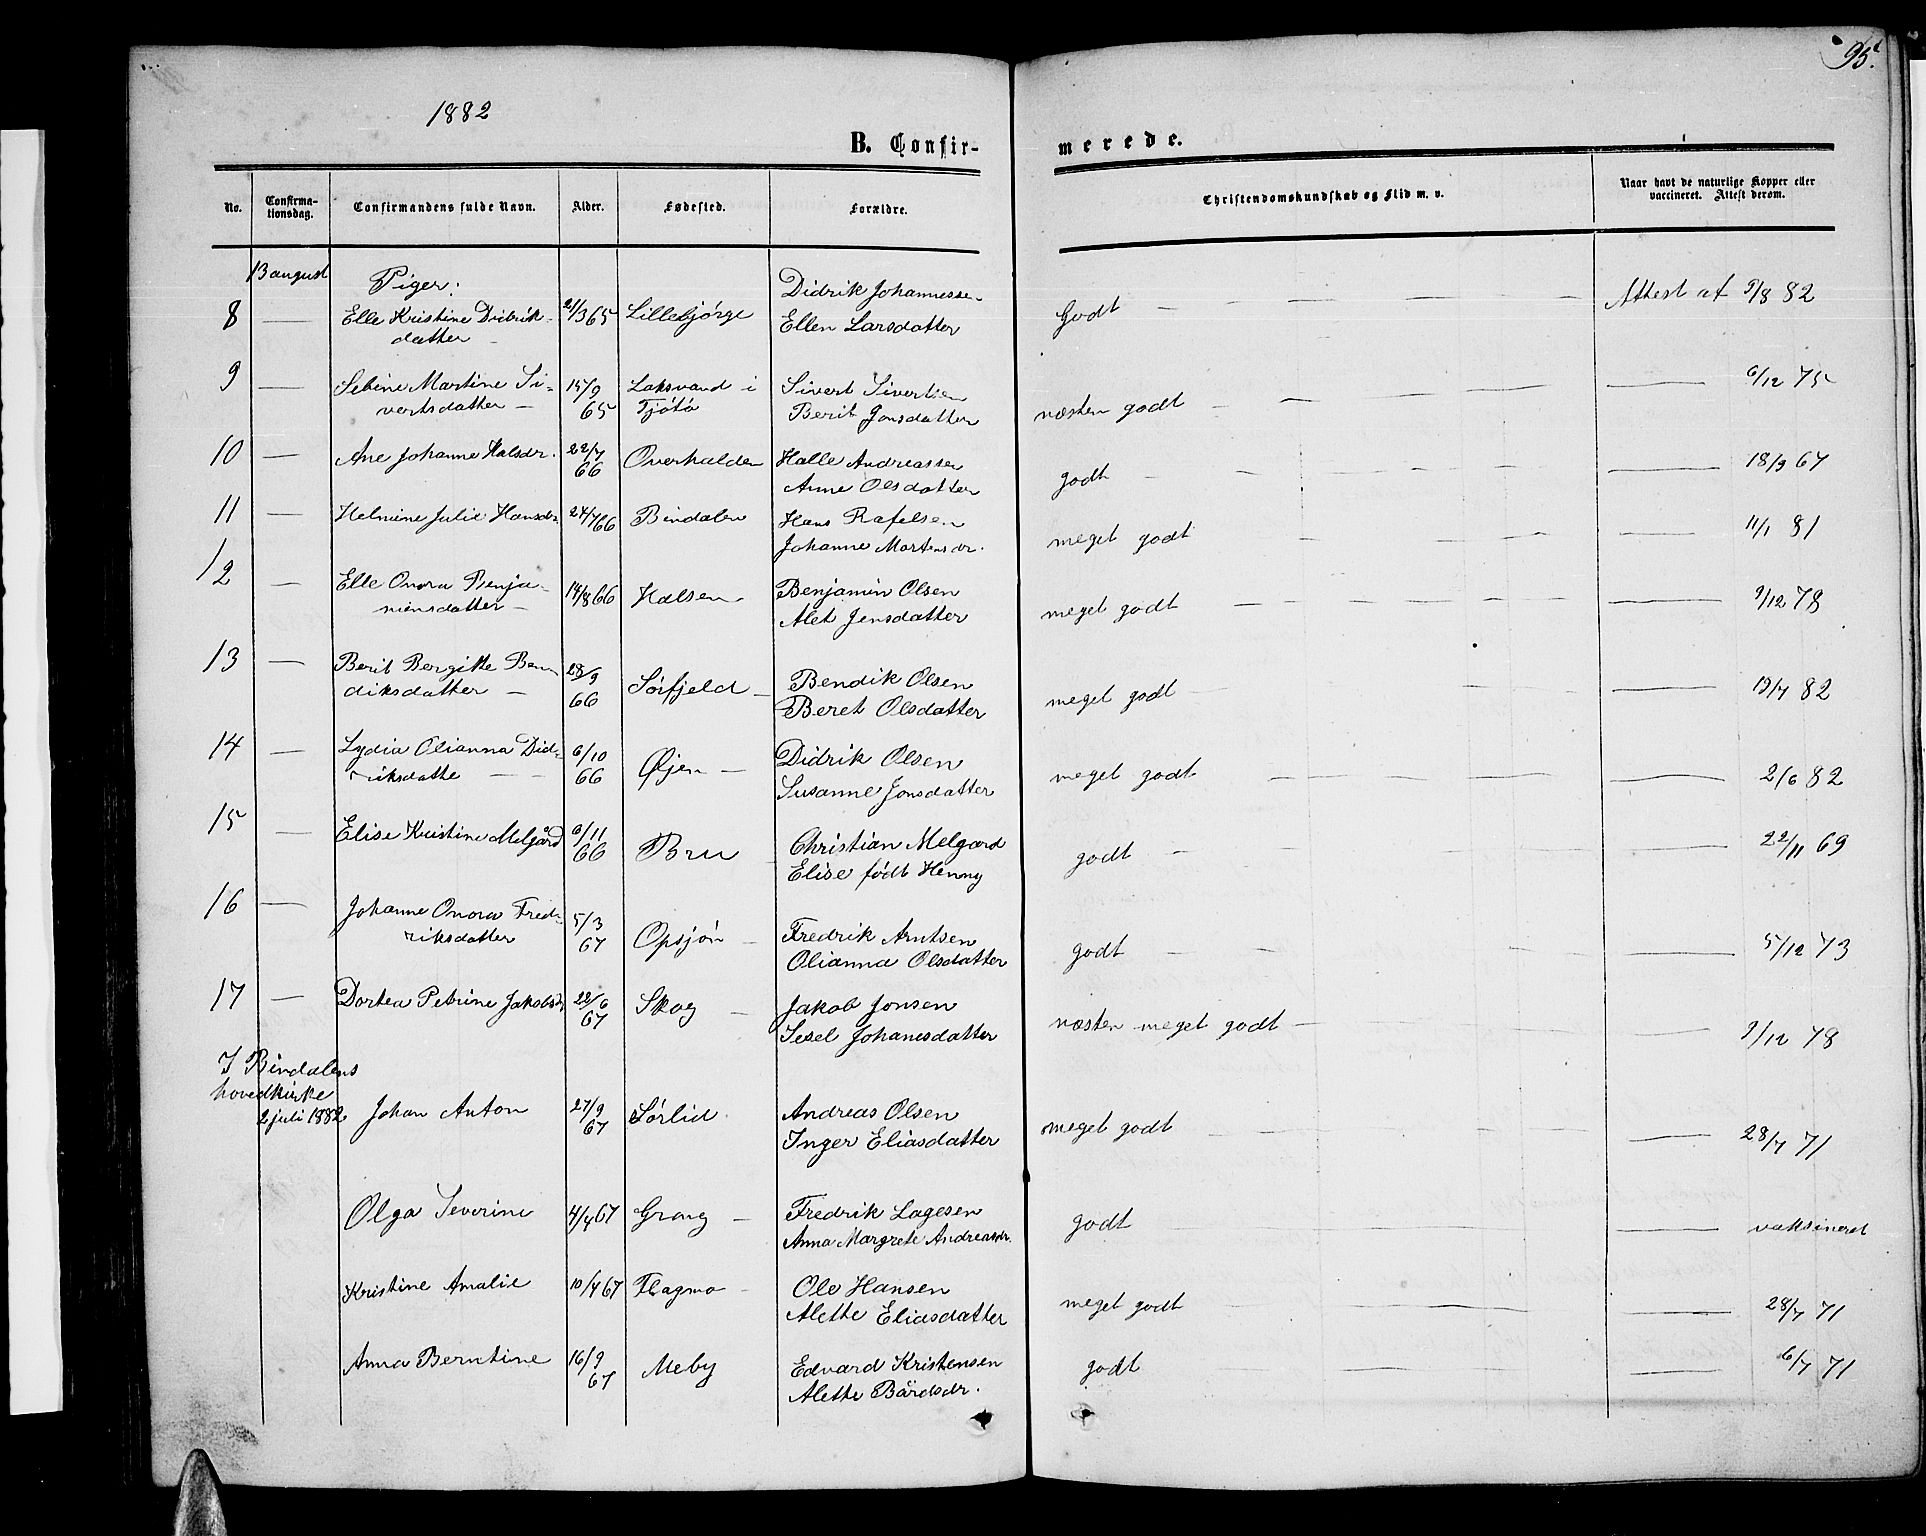 95.
1882
B. Confir-
merede.
No.
Confirma-
tionsdag.
Confirmandens fulde Navn.
Alder.
Fødested.
Forældre.
Christendomskundskab og Flid m. v.
Naar havt de naturlige Kopper eller
vaccineret. Attest derom.
13 august Piger:
8 — Elle Kristine Didrik- 21/3 65 Lillebjørge Didrik Johannessen Godt — Attest af 9/8 82
datter — Ellen Larsdatter
9 — Sebine Martine Si- 14/9 Laksvand i Sivert Sivertsen næsten godt — 6/12 75
vertsdatter — 65 Tjötö Berit Jonsdatter
10 — Ane Johanne Halsdr. 22/7 Overhalden Halle Andreassen godt — 18/9 67
66 Anne Olsdatter
11 — Helmine Julie Hansdr. 24/7 66 Bindalen Hans Rafelsen meget godt — 11/1 81
Johanne Martensdr.
12 — Elle Onora Benja- 14/8 66 Halsen Benjamin Olsen meget godt — 9/12 78
minsdatter — Alet Jensdatter
13 — Berit Bergitte Ben- 28/9 Sörfjeld — Bendik Olsen meget godt — 19/7 82
diksdatter — 66 Beret Olsdatter
14 — Lydia Olianna Did- 6/10 Øjen — Didrik Olsen meget godt — 2/6 82
riksdatte — 66 Susanne Jonsdatter
15 — Elise Kristine Melgård 6/11 Bru — Christian Melgard godt — 22/11 69
66 Elise født Henny
16 — Johanne Onora Fred- 5/3 Opsjön — Fredrik Arntsen godt — 5/12 73
riksdatter 67 Olianna Olsdatter
17 — Dortea Petrine Jakobsdr 22/6 Skog — Jakob Jonsen næsten meget godt — 9/12 78
67 Sesel Johanesdatter
I Bindalens
hovedkirke
2 juli 1882 Johan Anton 27/9 Sörlid Andreas Olsen meget godt — 28/7 71
67 Inger Eliasdatter
Olga Severine 4/4 67 Grang — Fredrik Lagesen godt — vaksineret
Anna Margrete Andreasdr.
Kristine Amalie 10/4 67 Flagmo — Ole Hansen meget godt — 28/7 71
Alette Eliasdatter
Anna Berntine 16/9 Meby Edvard Kristensen godt — 6/7 71
67 Alette Bårdsdr.